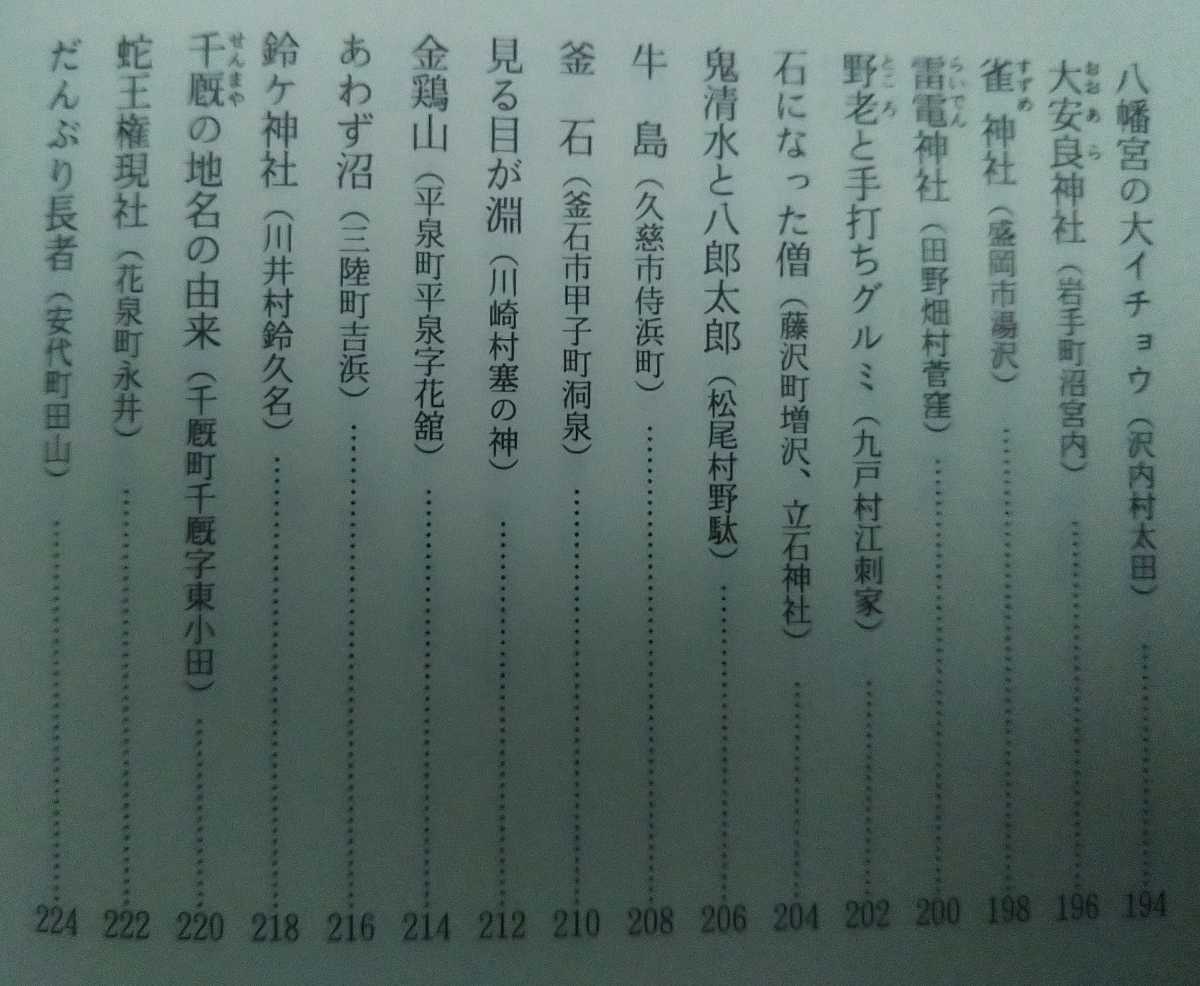 八幡宮の大イチョウ（沢内村太田）……194
大安良神社（岩手町沼宮内）……196
おおあら
雀神社（盛岡市湯沢）……198
すずめ
雷電神社（田野畑村菅窪）……200
らいでん
野老と手打ちグルミ（九戸村江刺家）……202
ところ
石になった僧（藤沢町増沢、立石神社）……204
鬼清水と八郎太郎（松尾村野駄）……206
牛島（久慈市侍浜町）……208
釜石（釜石市甲子町洞泉）……210
見る目が淵（川崎村塞の神）……212
金鶏山（平泉町平泉字花舘）……214
あわず沼（三陸町吉浜）……216
鈴ケ神社（川井村鈴久名）……218
千厩の地名の由来（千厩町千厩字東小田）……220
せんまや
蛇王権現社（花泉町永井）……222
だんぶり長者（安代町田山）……224